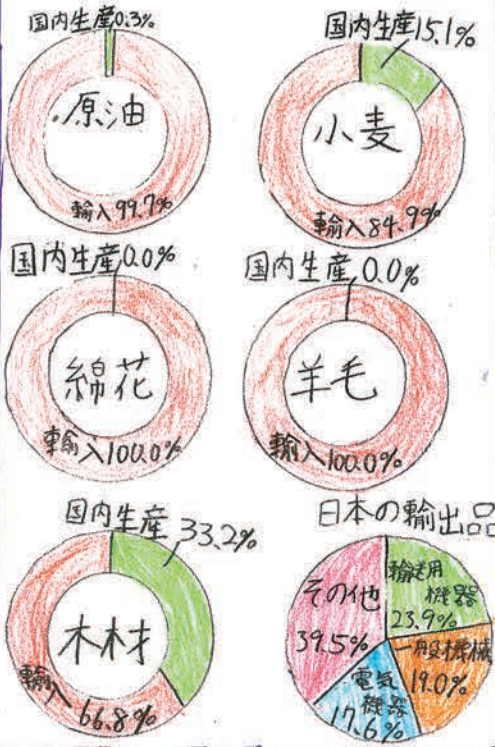 国内生産0.3%
原油
輸入99.7%
国内生産15.1%
小麦
輸入84.9%
国内生産0.0%
綿花
輸入100.0%
国内生産0.0%
羊毛
輸入100.0%
国内生産33.2%
木材
輸入
66.8%
日本の輸出品
輸送用
機器
23.9%
一般機械
19.0%
電気
機器
17.6%
その他
39.5%